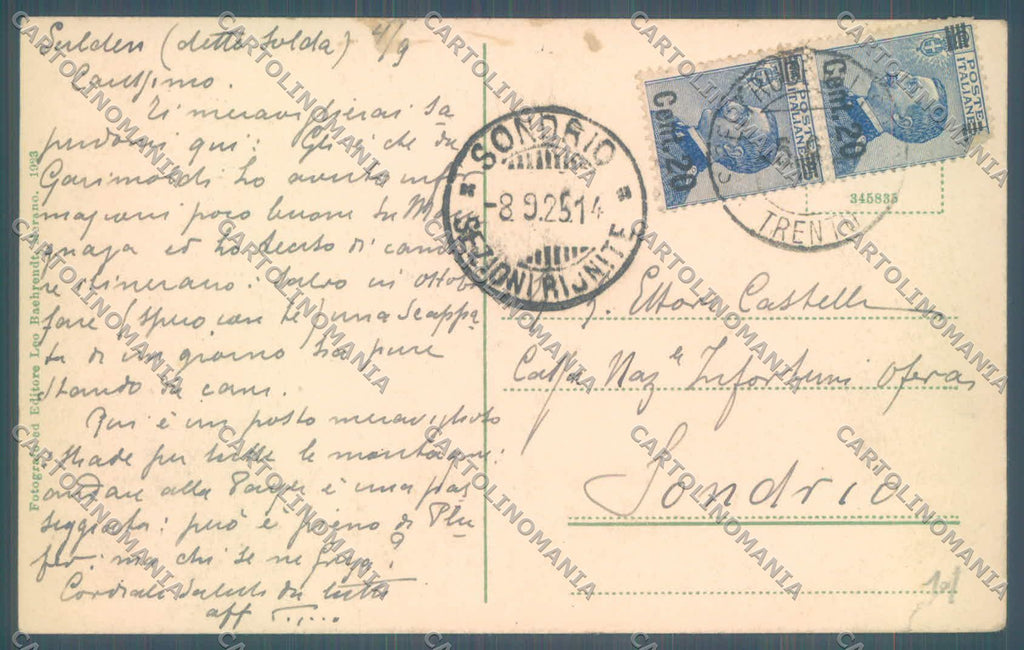 Sulden (detta Solda) 4/9
Carissimo.
Ti meraviglierai sa
perdomi qui: Gli è che da
Garimoldi ho avuto infor
mazioni poco buone su M
e ho deciso di cam
re itinerario. Salvo in ottobre
fare (spero con te) una scappa
ta di un giorno sia pure
stando da cani.
Qui è un posto meraviglioso
strade per tutte le montagne:
andare alla è una pas
seggiata: però è pieno di Plu
fer. ma chi se ne frega!
Cordiali saluti da tutti
aff T.....
Fotografo ed Editore Leo Baehrendt, Merano. 1923
SONDRIO
-8 9.25.14
SEZIONI RIUNITE
POSTE ITALIANE
Cent. 20
POSTE ITALIANE
Cent. 20
TRENTO
345835
Ettore Castelli
Cassa Naz.le Infortuni Operai
Sondrio
CARTOLINOMANIA